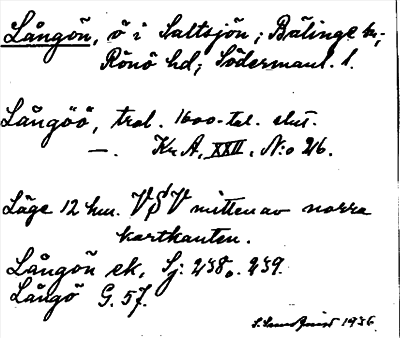 Långön, ö i Saltsjön; Bälinge sn;
Rönö hd; Södermanl. l.
Långöö, trol. 1600-tal. slut.
—. Kr. A. XXII. N:o 26.
Läge 12 hm. VSV mitten av norra
kartkanten.
Långön ek. Sj: 238, 239.
Långö G. 57.
S. Sundqvist 1936